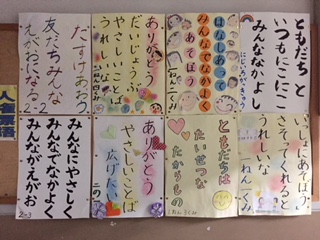 ともだちと
いつもにこにこ
みんななかよし
にじいろがっきゅう
はなしあって
みんなでなかよく
あそぼう
一ねん二くみ
ありがとう
だいじょうぶ
やさしいことば
うれしいな
一ねん四くみ
たすけあおう
友だちみんな
えがおになる
2-2
いっしょにあそぼう
さそってくれると
うれしいな
一ねん一くみ
ともだちは
たいせつな
たからもの
一ねん三くみ
ありがとう
やさしいことば
広げたい
二の一
みんなにやさしく
みんなでなかよく
みんながえがお
2の3
人権標語